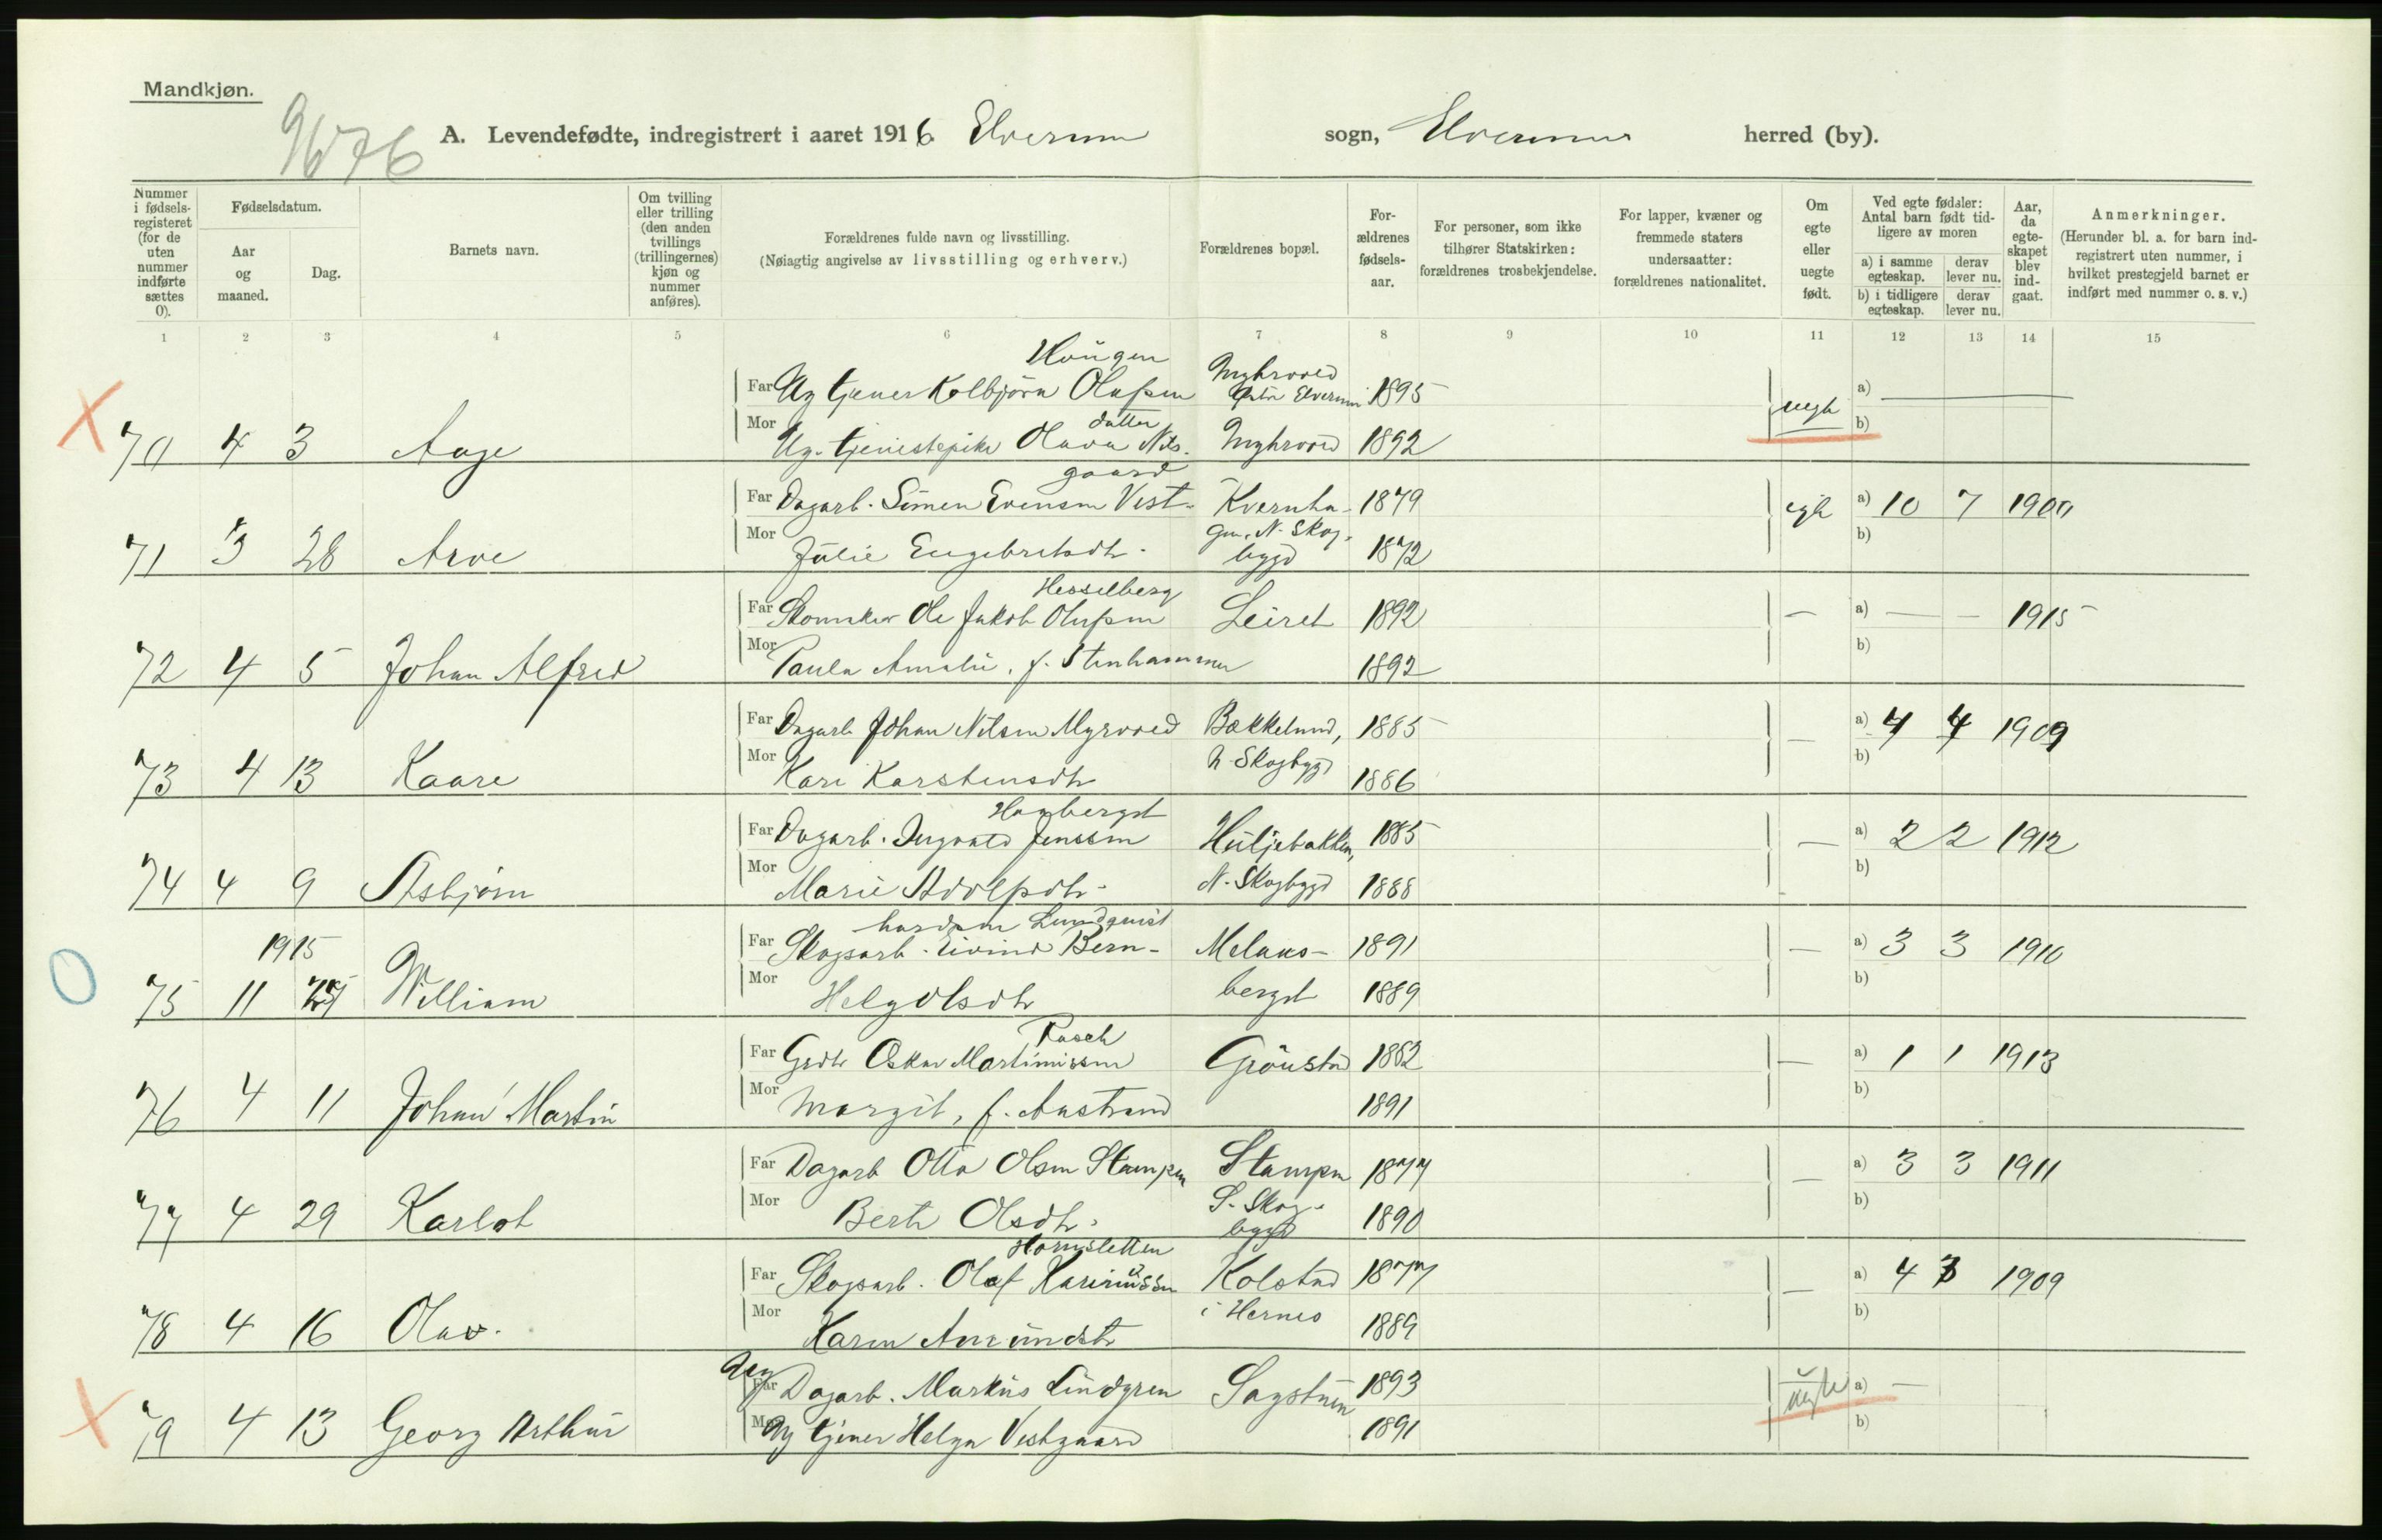 Mandkjøn.
9676
A. Levendefødte, indregistrert i aaret 1916 Elverum sogn, Elverum herred (by).
Nummer i fødsels-registeret (for de uten nummer indførte sættes 0).
Fødselsdatum.
Aar og maaned.
Dag.
Barnets navn.
Om tvilling eller trilling (den anden tvillings (trillingernes) kjøn og nummer anføres).
Forældrenes fulde navn og livsstilling.
(Nøiagtig angivelse av livsstilling og erhverv.)
Forældrenes bopæl.
For-ældrenes fødsels-aar.
For personer, som ikke tilhører Statskirken: forældrenes trosbekjendelse.
For lapper, kvæner og fremmede staters undersaatter: forældrenes nationalitet.
Om egte eller uegte født.
Ved egte fødsler: Antal barn født tid-ligere av moren
a) i samme egteskap.
derav lever nu.
b) i tidligere egteskap.
derav lever nu.
Aar, da egte-skapet blev ind-gaat.
Anmerkninger.
(Herunder bl. a. for barn ind-registrert uten nummer, i hvilket prestegjeld barnet er indført med nummer o. s. v.)
1 2 3 4 5 6 7 8 9 10 11 12 13 14 15
Haugen
Far Ug tjener Kolbjørn Olafsen Elverum 1895 uegte a) —
datter
70 4 3 Aage Mor Ug. tjenestepike Olava Nils- 1892 b)
gaard
Far Dagarb. Simen Evensen Vest- Kvernha- 1879 egte a) 10 7 1900
71 3 28 Arve Mor Julie Engebretsdtr. gen, N. Skogbygd 1872 b)
Hesselberg
Far Skomaker Ole Jakob Olafsen Leiret 1892 — a) — — 1915
72 4 5 Johan Alfred Mor Paula Amalie, f. Stenhammer 1892 b)
Far Dagarb Johan Nilsen Myrvold Bækkelund, 1885 — a) 4 4 1909
73 4 13 Kaare Mor Kari Karstensdtr N. Skogbygd 1886 b)
Haxberget
Far Dagarb. Ingvald Jenssen Huljebakken, 1885 — a) 2 2 1912
74 4 9 Asbjørn Mor Marie Adolfsdtr. N. Skogbygd 1888 b)
hardsen Lundquist
1915 Far Skogsarb. Eivind Bern- Melaas- 1891 — a) 3 3 1910
75 11 William Mor Helg Olsdtr berget 1889 b)
Rasch
Far Grdbr Oskar Martiniussen Grønstad 1882 — a) 1 1 1913
76 4 11 Johan Martin Mor Margit, f. Aastrand 1891 b)
Far Dagarb Otto Olsen Stampen Stampen 1877 — a) 3 3 1911
77 4 29 Karlot Mor Berte Olsdtr. S. Skogbygd 1890 b)
Hornsletten
Far Skogsarb. Olaf Kariniussen Kolstad 1877 — a) 4 3 1909
78 4 16 Olav. Mor Karen Amundsdtr i Hernes 1889 b)
Ug
Far Dagarb. Markus Lindgren Sagstuen 1893 uegte a) —
79 4 13 Georg Arthur Mor Ug tjener Helga Vestgaard 1891 b)